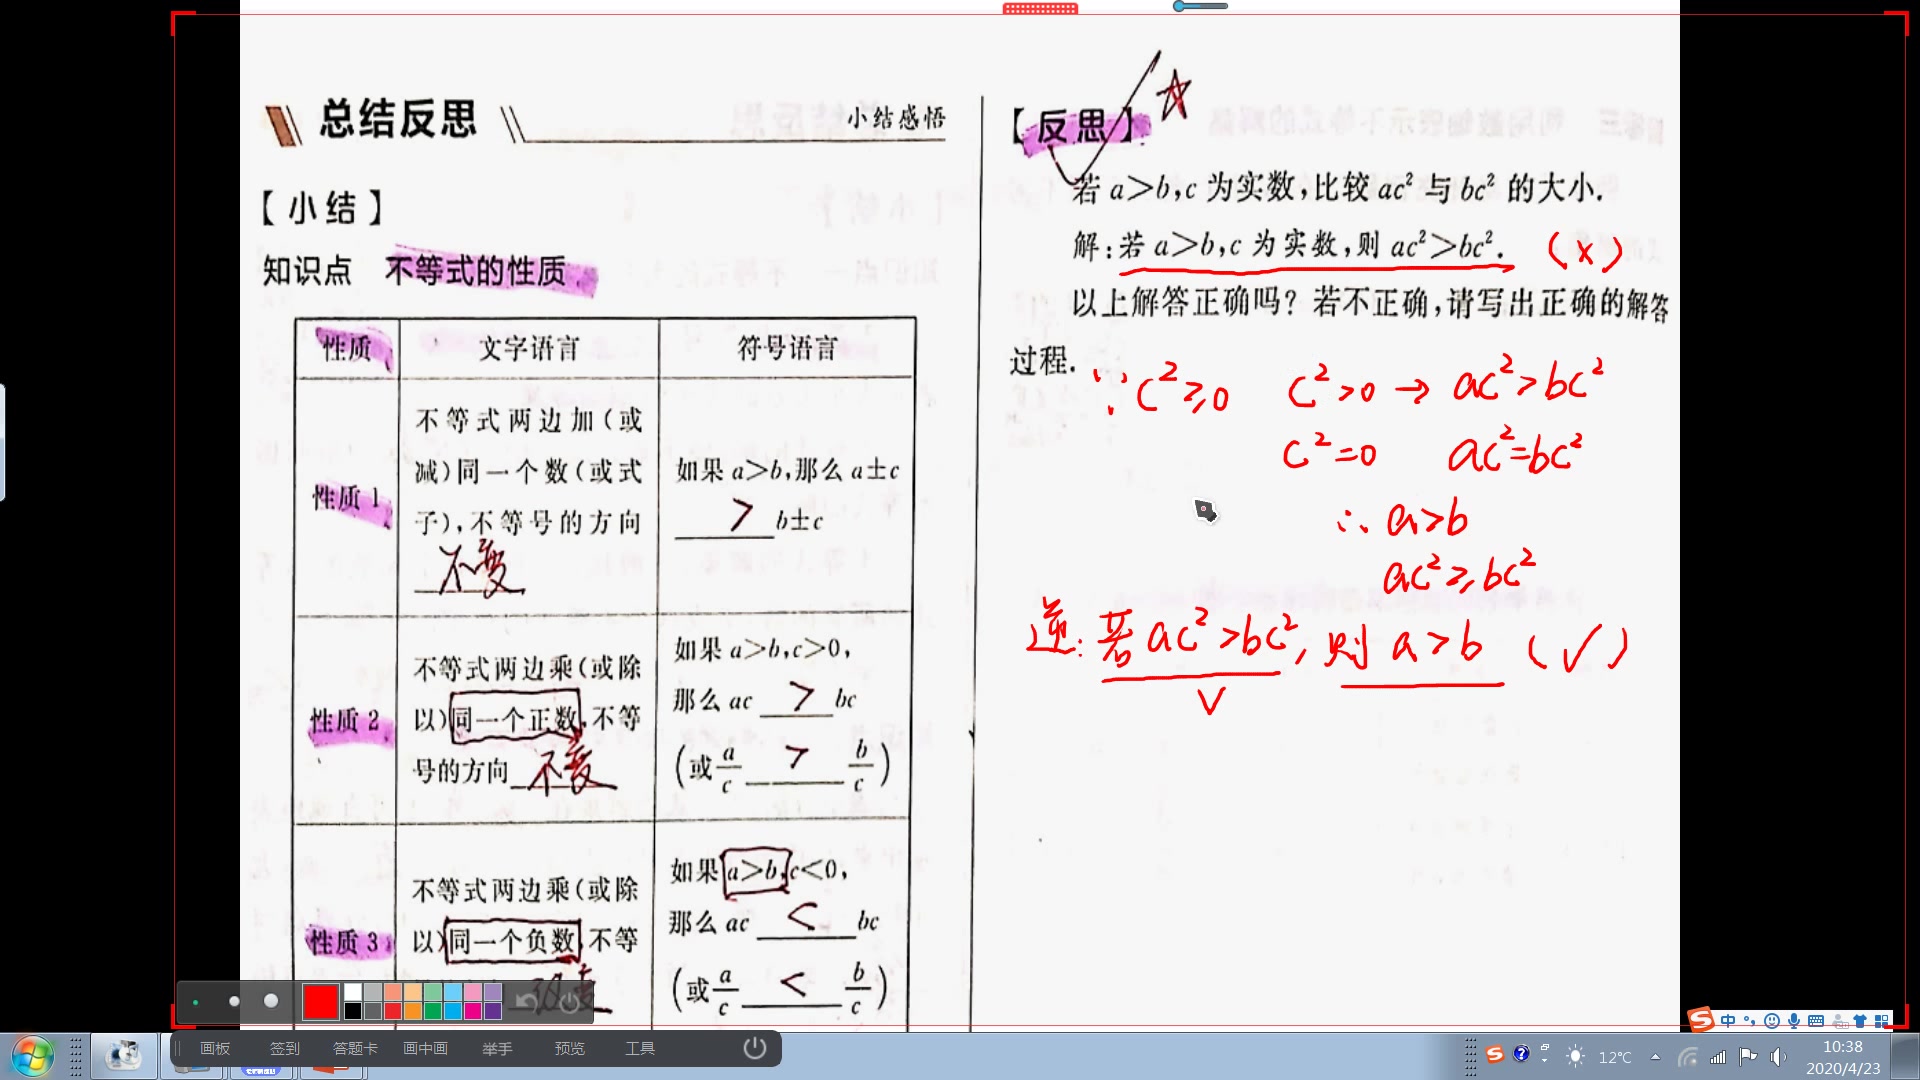 总结反思
小结感悟
【小结】
知识点 不等式的性质
性质 文字语言 符号语言
性质1
不等式两边加(或
减)同一个数(或式
子),不等号的方向
不变
如果 a>b,那么 a±c
> b±c
性质2
不等式两边乘(或除
以)同一个正数,不等
号的方向 不变
如果 a>b,c>0,
那么 ac > bc
(或 a/c > b/c)
性质3
不等式两边乘(或除
以)同一个负数,不等
如果 a>b,c<0,
那么 ac < bc
(或 a/c < b/c)
【反思】
若 a>b,c 为实数,比较 ac² 与 bc² 的大小.
解:若 a>b,c 为实数,则 ac²>bc². (×)
以上解答正确吗?若不正确,请写出正确的解答
过程.
∵ c²≥0 c²>0 → ac²>bc²
c²=0 ac²=bc²
∴ a>b
ac²≥bc²
逆:若 ac²>bc²,则 a>b (√)
画板 签到 答题卡 画中画 举手 预览 工具
中
12℃
10:38
2020/4/23